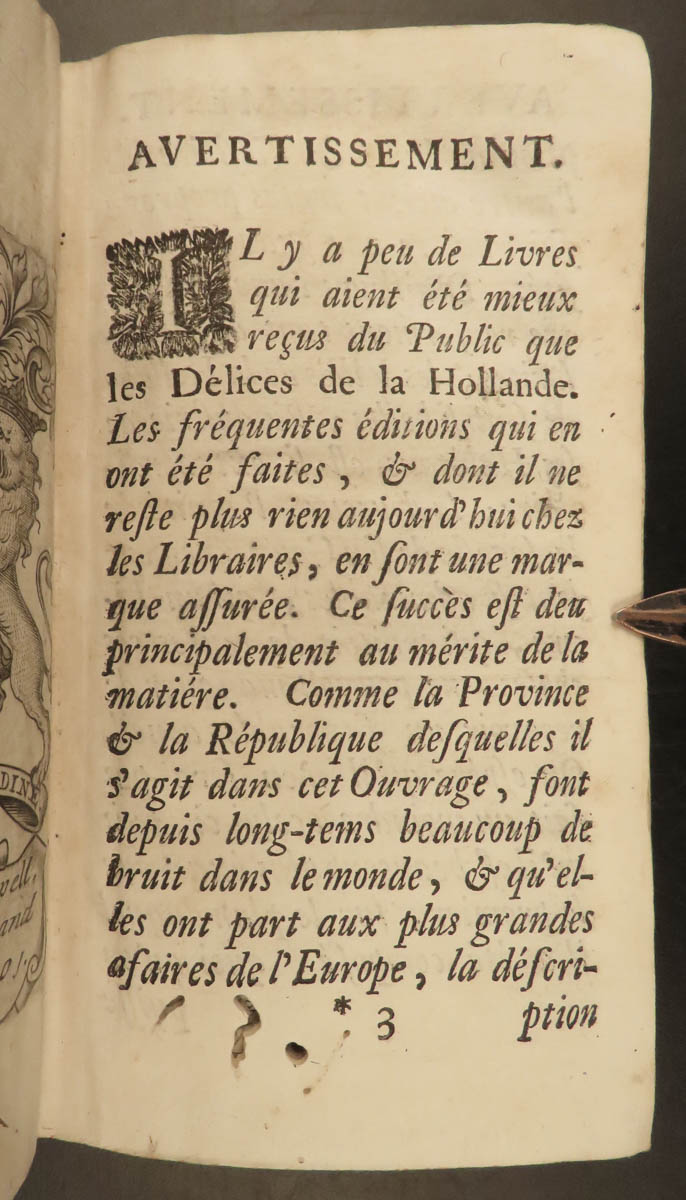 AVERTISSEMENT.
IL y a peu de Livres
qui aient été mieux
reçus du Public que
les Délices de la Hollande.
Les fréquentes éditions qui en
ont été faites, & dont il ne
reſte plus rien aujourd'hui chez
les Libraires, en ſont une mar-
que aſſurée. Ce ſuccès eſt deu
principalement au mérite de la
matiére. Comme la Province
& la République deſquelles il
s'agit dans cet Ouvrage, font
depuis long-tems beaucoup de
bruit dans le monde, & qu'el-
les ont part aux plus grandes
afaires de l'Europe, la déſcri-
* 3 ption
DINE
well,
and